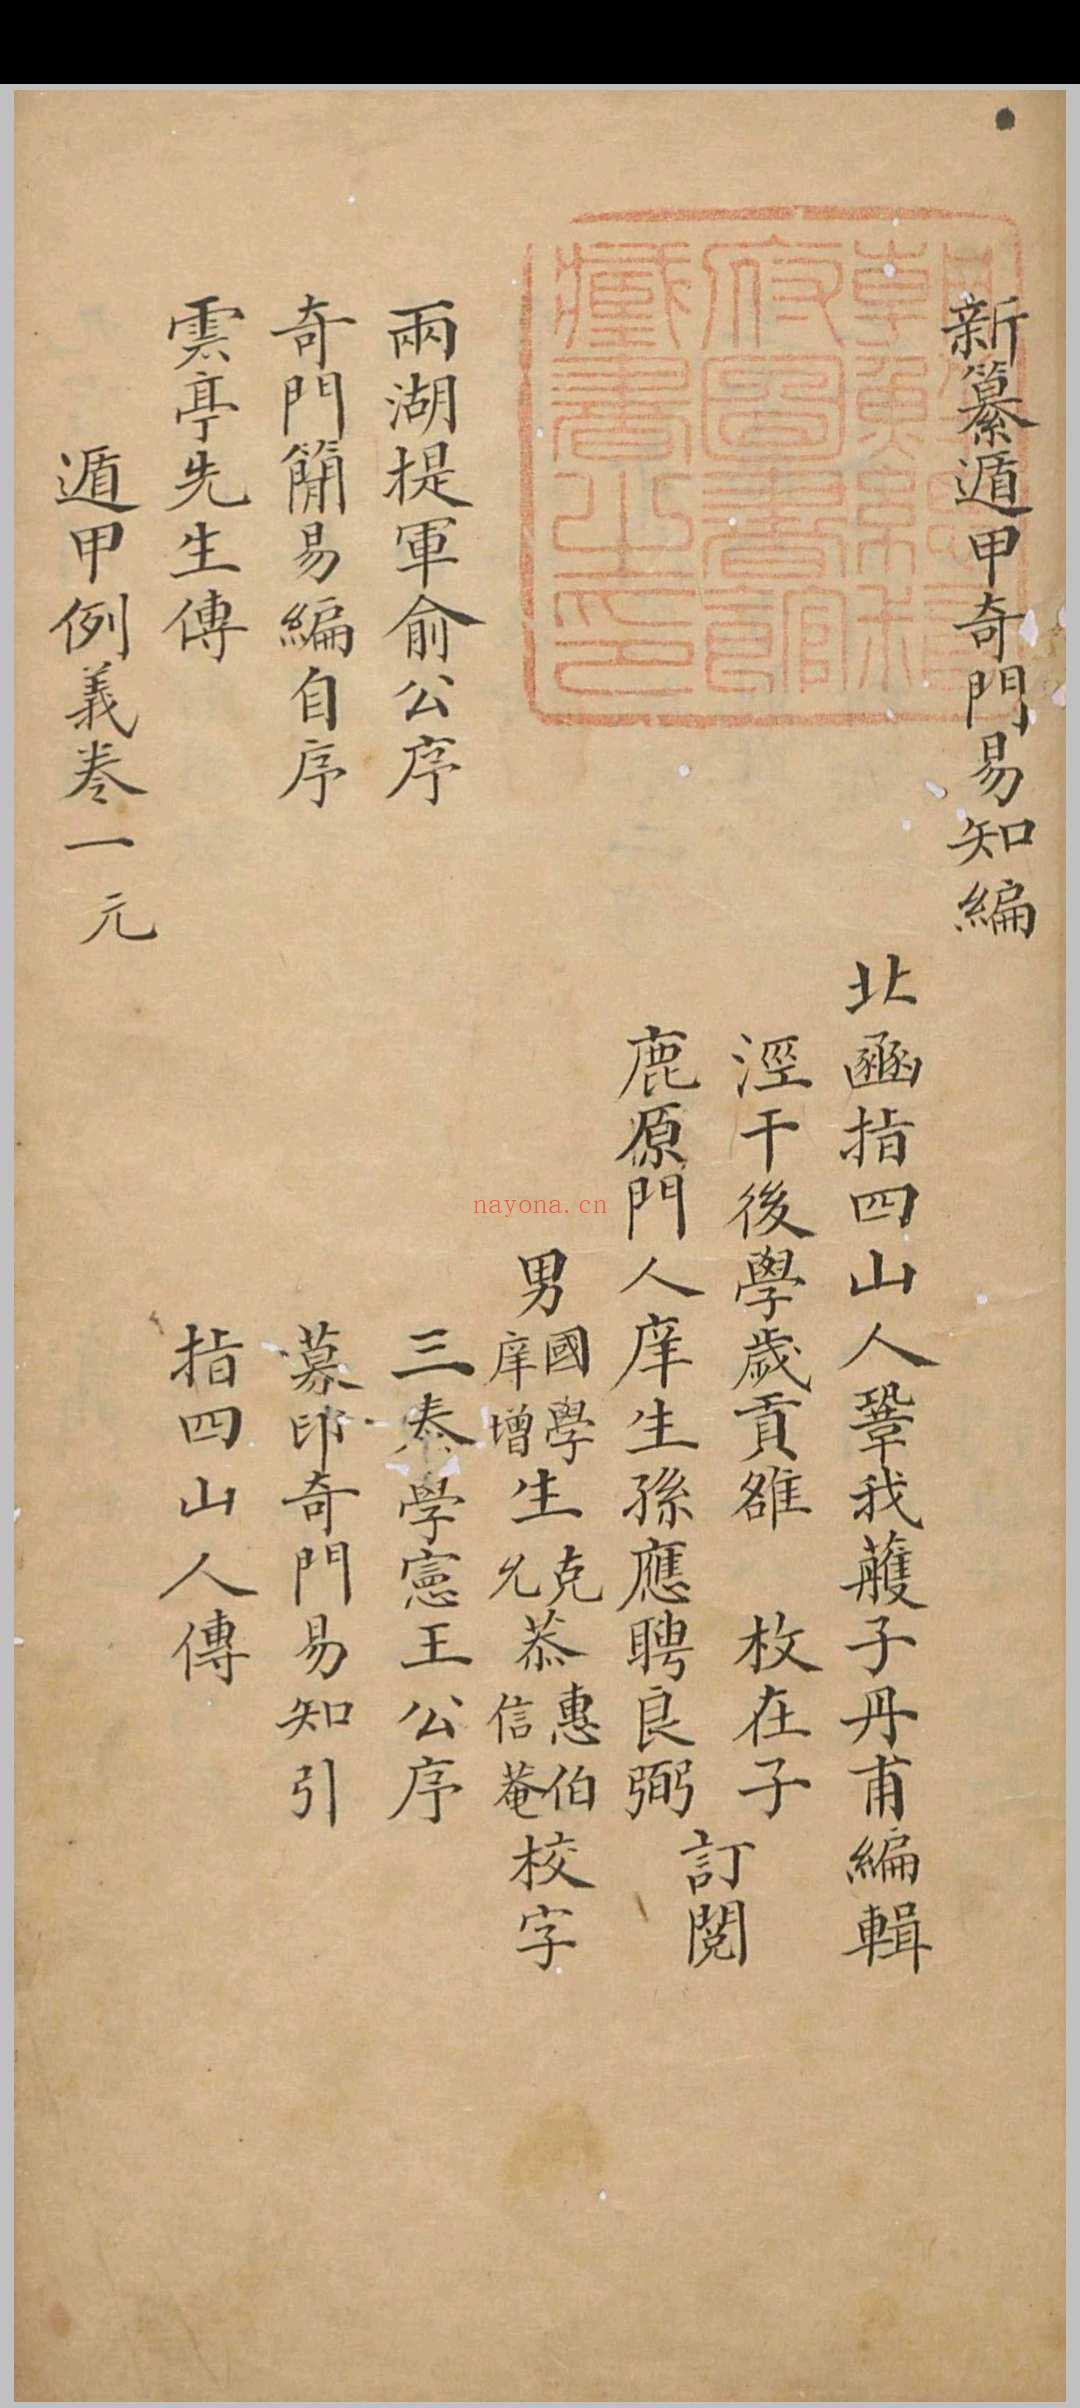 新纂遁甲奇門易知編
北函指四山人鞏我艧子丹甫編輯
涇干後學歲貢雒 枚在子
鹿原門人庠生孫應聘良弼
訂閱
男國學庠增生克允恭惠伯信菴校字
兩湖提軍俞公序
三秦學憲王公序
奇門簡易編自序
募印奇門易知引
雲亭先生傳
指四山人傳
遁甲例義卷一元
朝鮮總督府圖書館藏書之印
nayona.cn